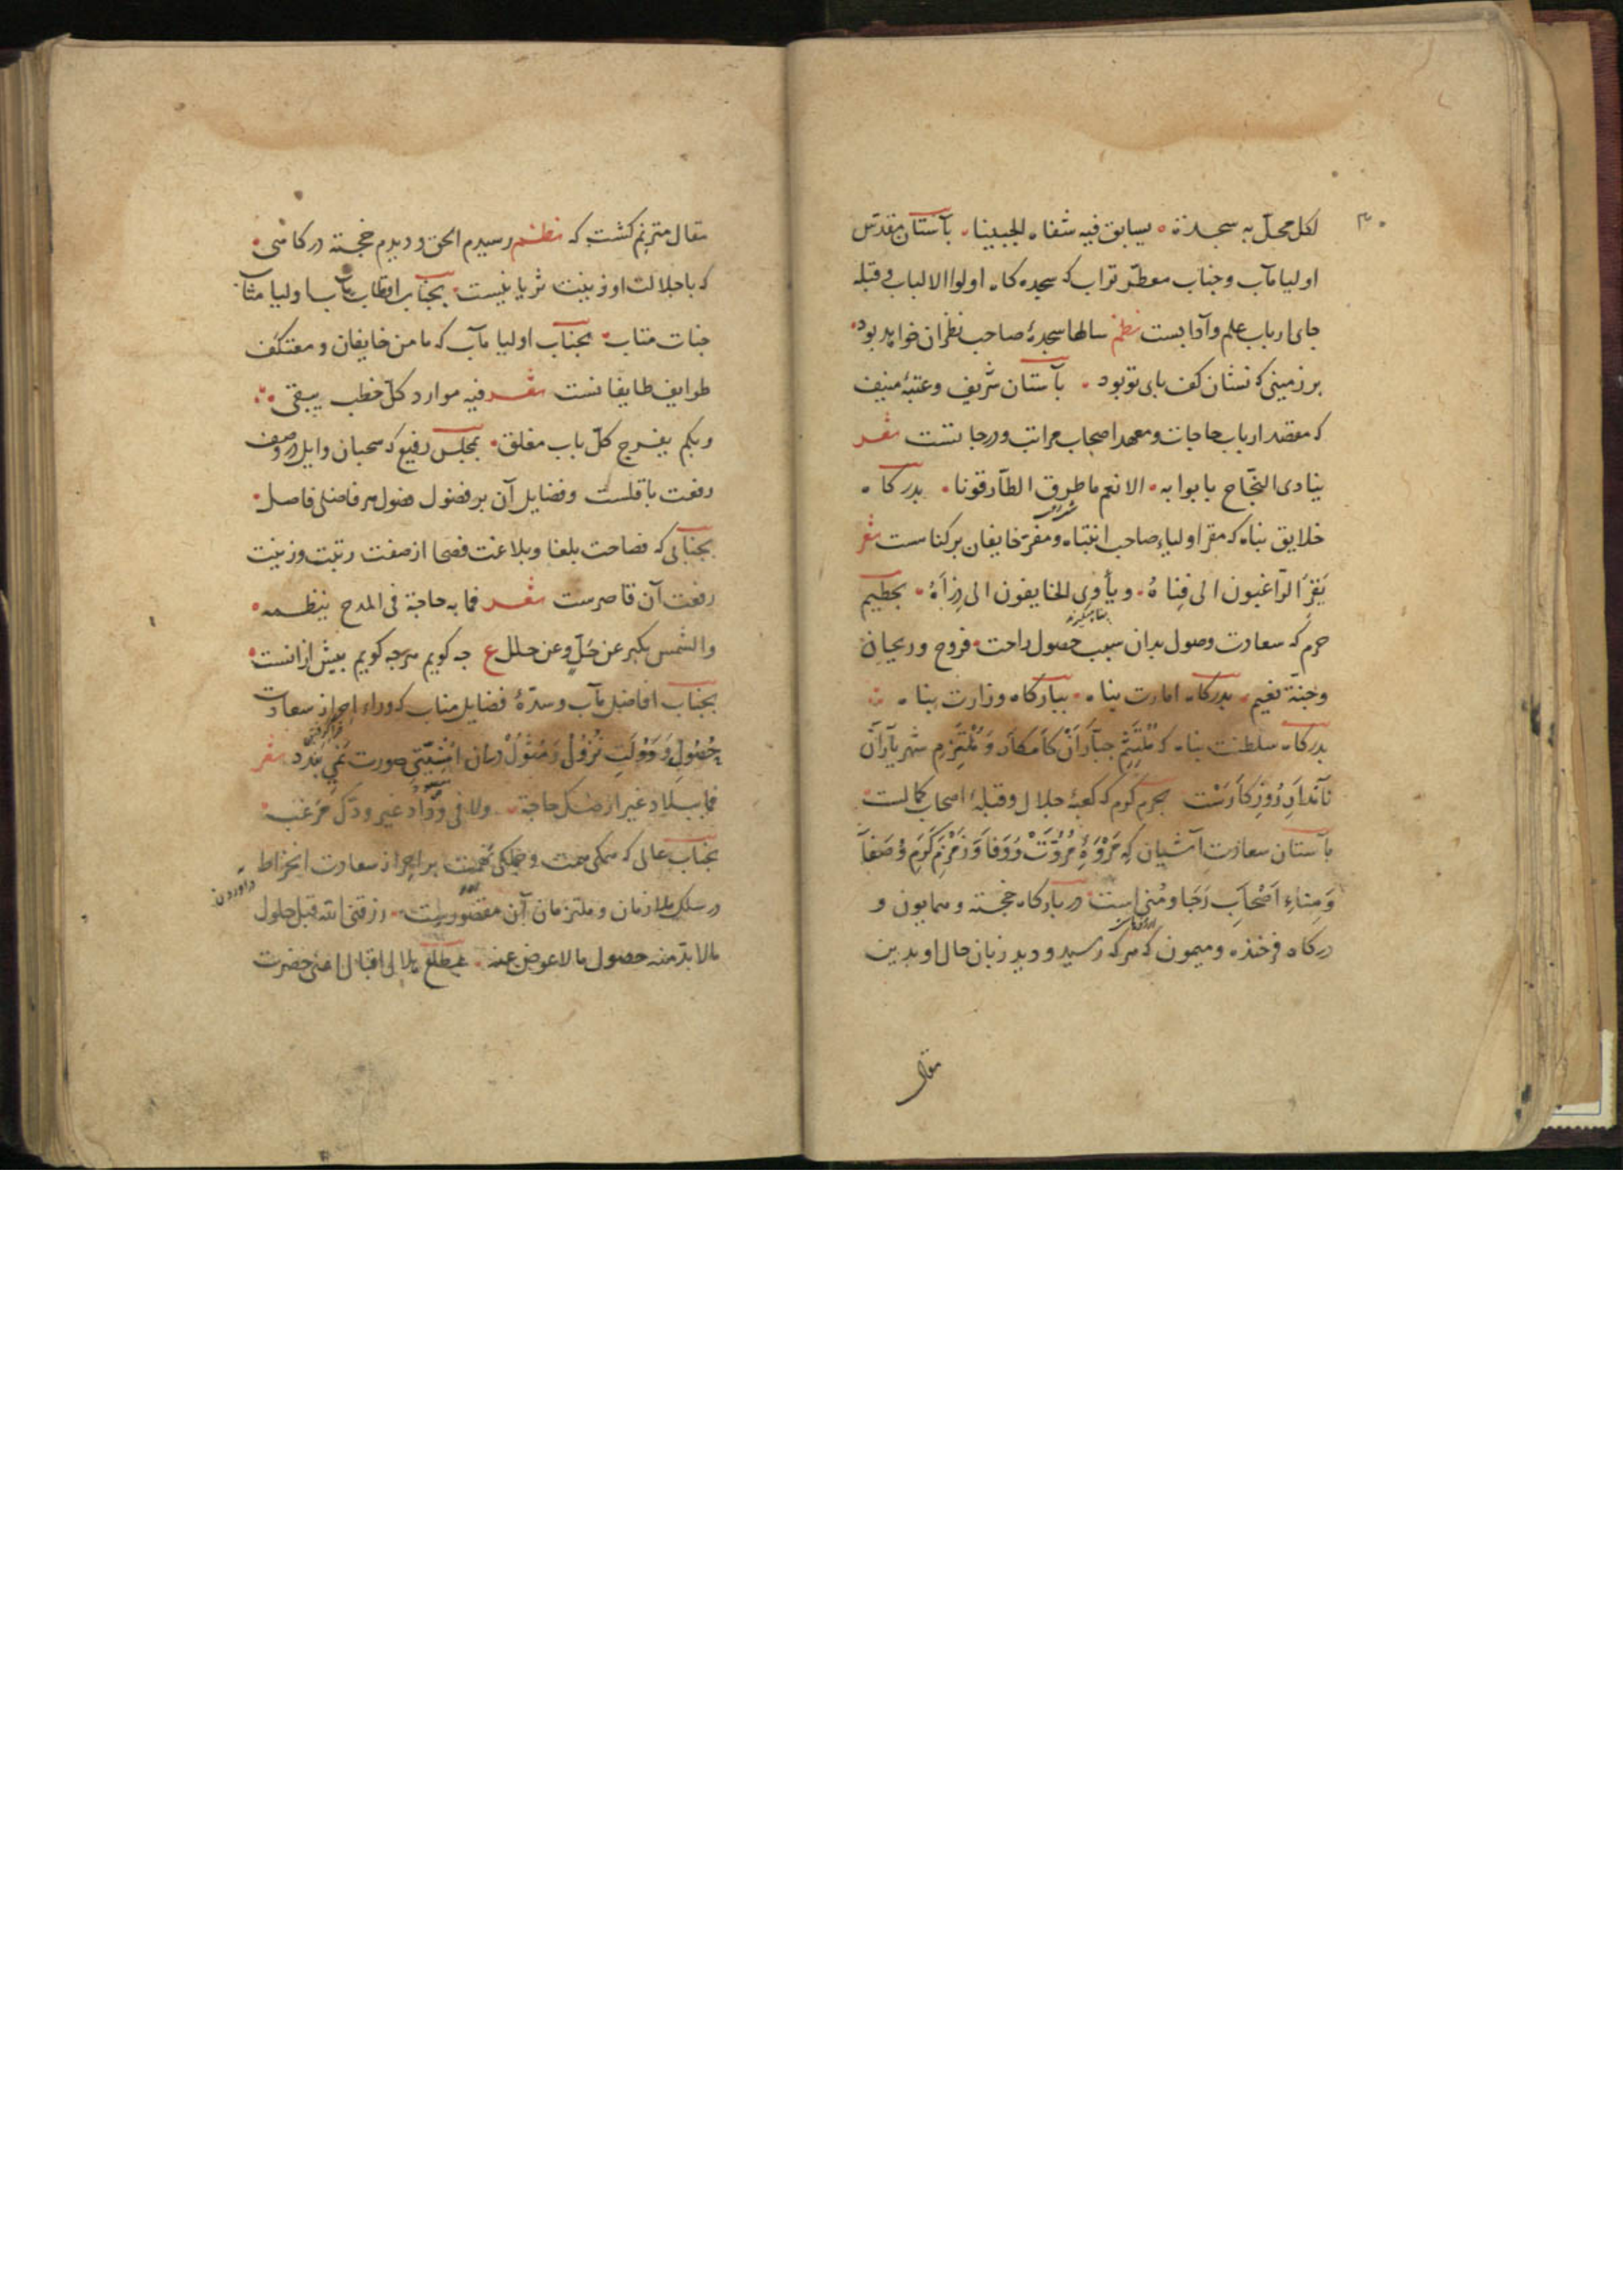 لكل محلّ به سجدة • يسابق فيه شفاه الجبينا • بآستان مقدّس
اولیا مآب و جناب معطّر تراب که سجده کاه اولوا الالباب و قبله
جای ارباب علم و آدابست نظم سالها سجدۀ صاحب نظران خواهد بود •
بر زمینی که نشان کف بای تو بود • بآستان شریف و عتبۀ منیف
که مقصد ارباب حاجات و معهد اصحاب مراتب و درجاتست شعر
ینادی النجاح بابوابه • الا نعم ما طرق الطّارقونا • بدرکاه
خلایق بناه که مقرّ اولیاء صاحب انتباه و مفرّ خایفان برکناست شعر
یَفِرّ الرّاغبون الی فِناهُ • ویأوی الخایفون الی ذِرَاهُ • بحطیم
حرم که سعادت وصول بدان سبب حصول راحت • فروح و ریحان
وجنّة نعیم • بدرکاه امارت بناه • ببارکاه وزارت بناه
بدرکاه سلطنت بناه که مُلتَثِم جبّاران کامکار و مُلتَزِم شهریاران
نامدار روزکارست بحرم کرم که کعبۀ جلال و قبلۀ اصحاب کمالست
بآستان سعادت آشیان که مَرْوَۀِ مُرُوَّتْ وَوَفَا وَزَمْزَمِ کَرَم وَصَفَا
وَمِنَاءِ اَصْحَابِ رَجَا و مُنی است در بارکاه خجسته و همایون و
درکاه فرخنده و میمون که هرکه رسید و دید زبان حال او بدین
مقال
مقال مترنم کشت که نظم رسیدم الحق و دیدم خجسته درکاهی •
که با جلالت او زینت ثریا نیست • بجناب اقطاب مآب اولیا مثاب
جنات متاب • بجناب اولیا مآب که مامن خایفان و معتکف
طوایف طایفانست شعر فیه موارد کلّ خطب یتقی
وبکم یفرج کلّ باب مغلق • بمجلس رفیع که سحبان وایل در وصف
رفعت باقلست و فضایل آن بر فضول فضول هر فاضلی فاصل •
بجنابی که فصاحت بلغا و بلاغت فصحا از صفت رتبت و زینت
رفعت آن قاصرست شعر فما به حاجة فی المدح ینظمه •
والشمس یکبر عن حُلیٍ وعن حلل ع جه کویم هرجه کویم بیش ازانست •
بجناب افاضل مآب و سدّۀ فضایل مناب که وراء احراز سعادت
حُصُول وَدَوْلَتِ نُزُولْ وَمُثُولْ دران اُمْنِیَّتی صورت نمی بندد شعر
فما ببلاد غیر ارضک حاجة • ولا فی وداد غیر ودّک مرغب •
بجناب عالی که همکی همت و جملکی نهمت بر احراز سعادت انخراط
در سلک ملازمان و ملتزمان آن مقصورست • رزقنی الله قبل حلول
مالابدّ منه حصول مالا عوض عنه • بمطلع هلالی اقبال اعنی حضرت